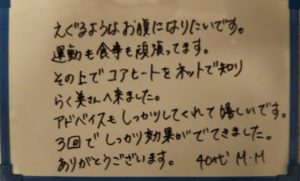 えぐるようなお腹になりたいです。
運動も食事も頑張ってます。
その上でコアヒートをネットで知り
らく美さんへ来ました。
アドバイスもしっかりしてくれて嬉しいです。
3回でしっかり効果がでてきました。
ありがとうございます。 40代 M.M